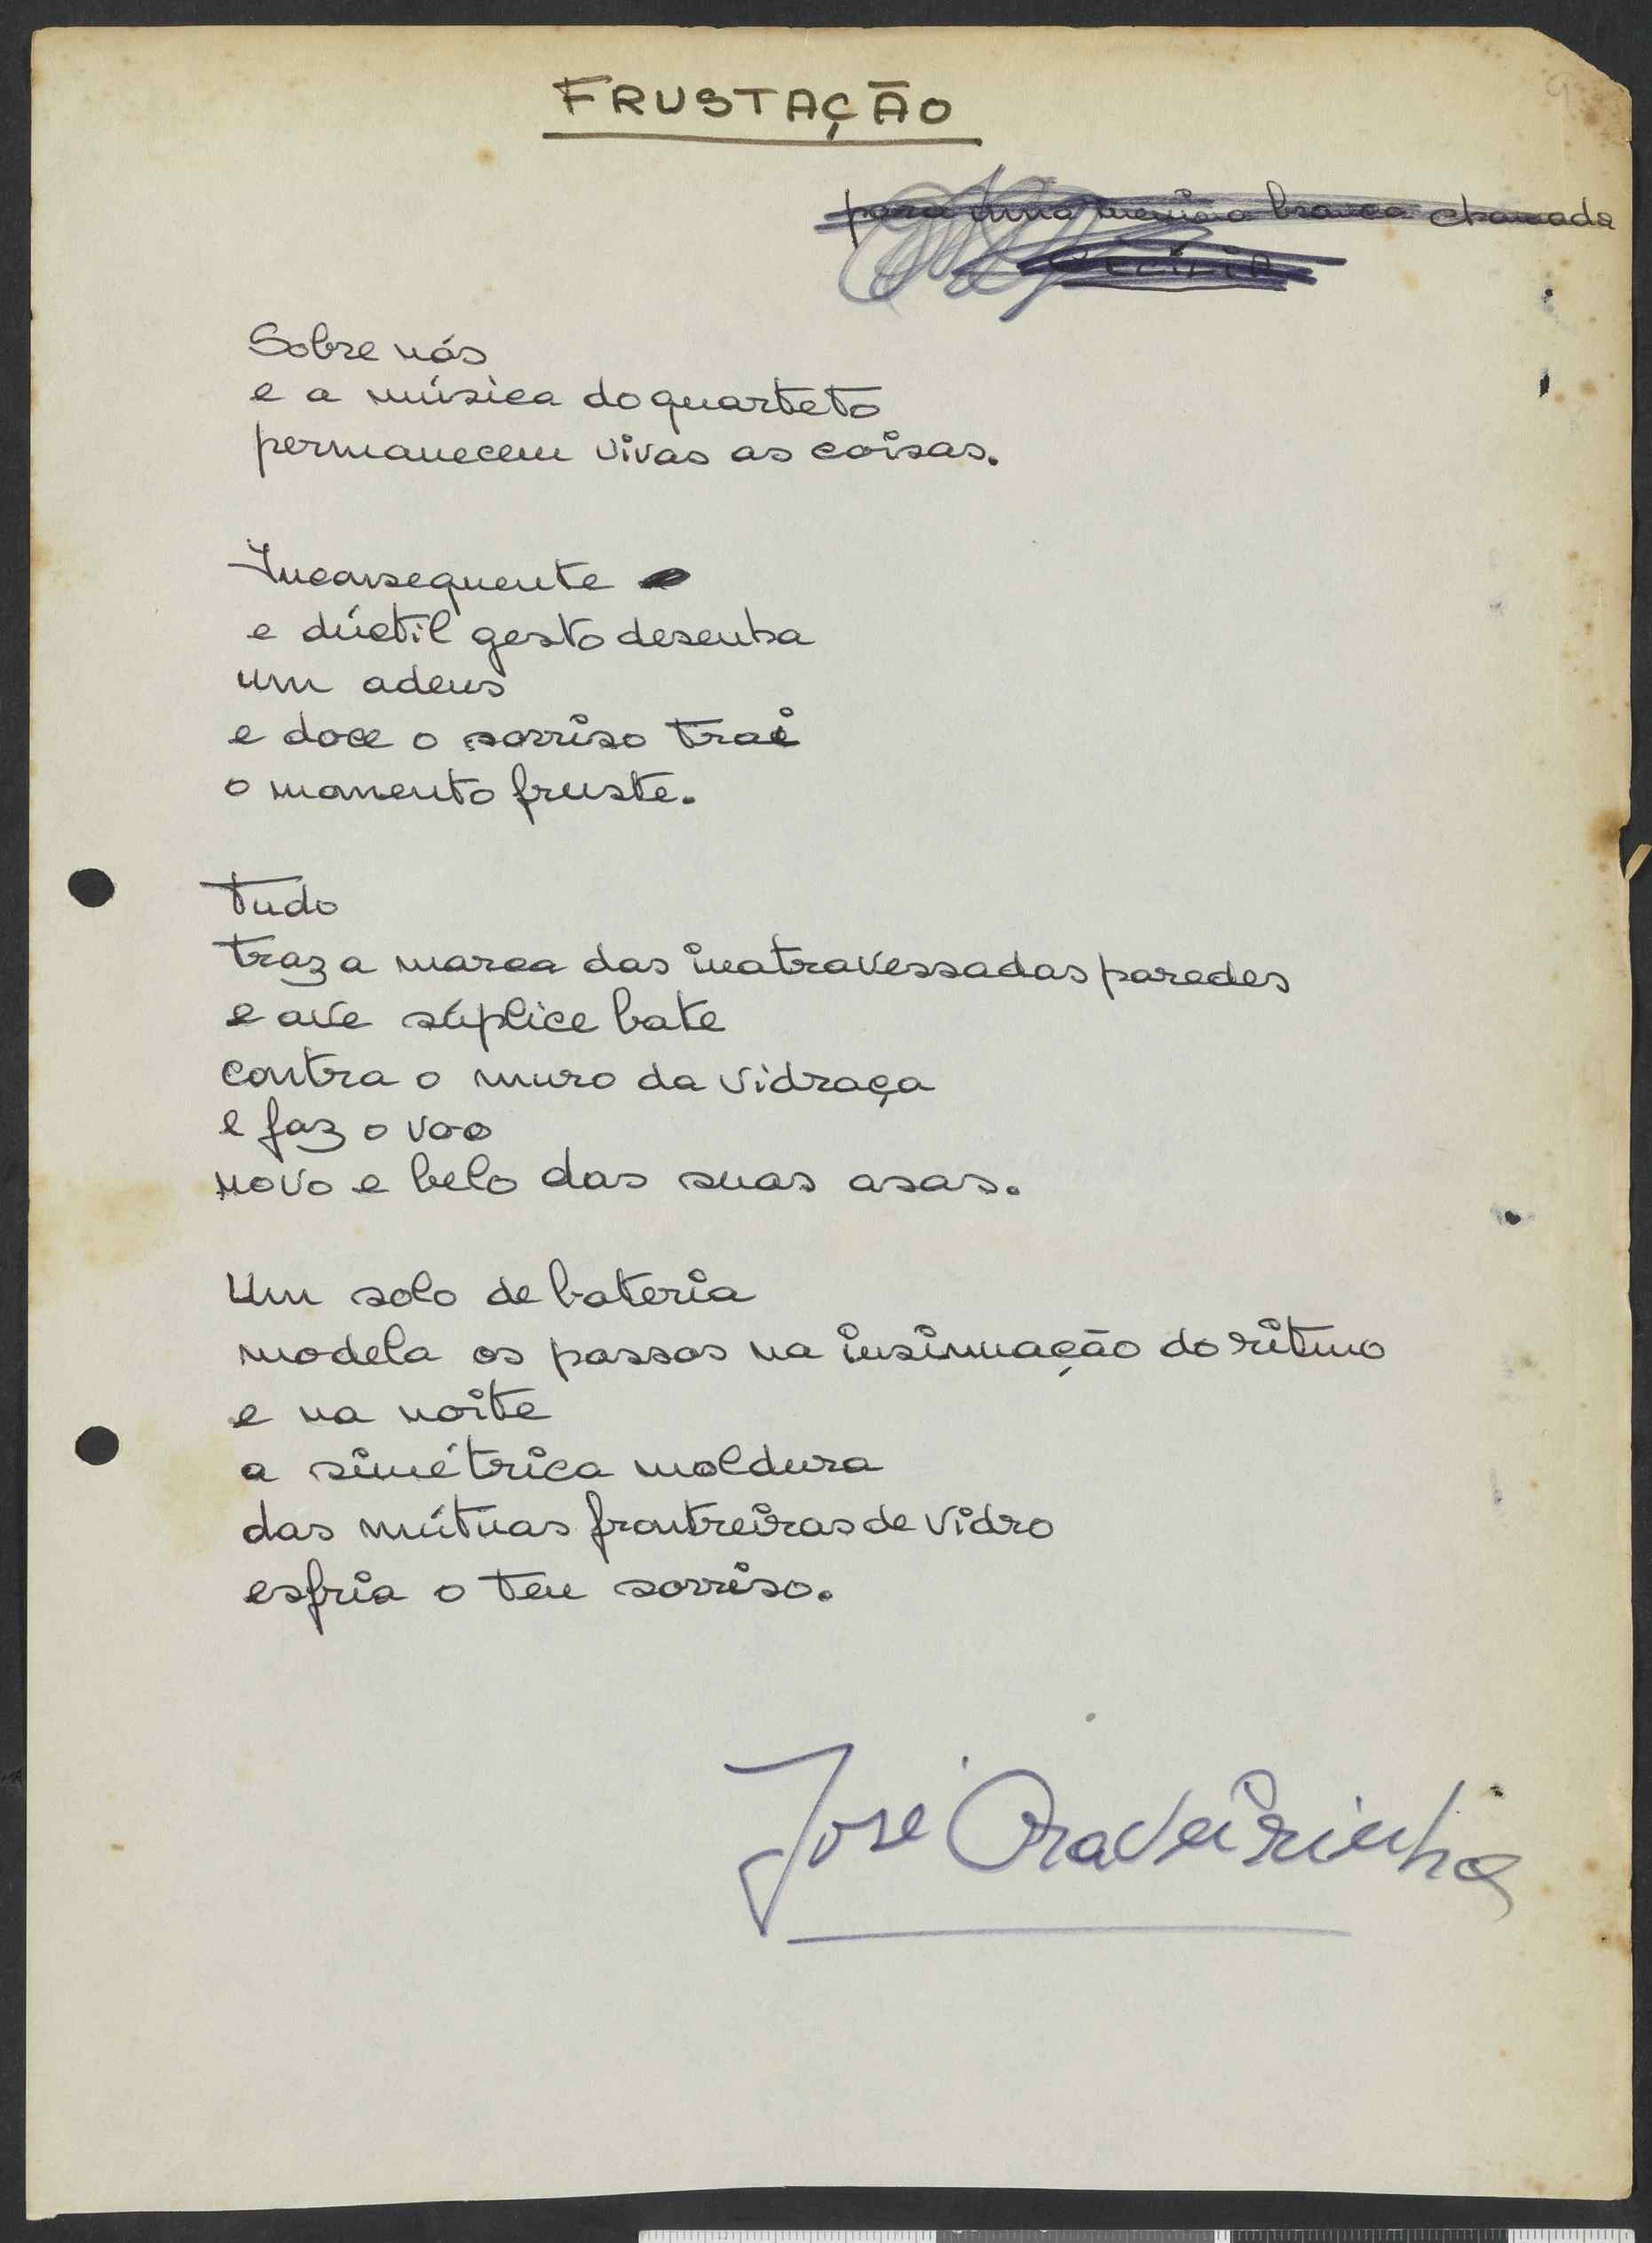 FRUSTAÇÃO
para uma menina branca chamada
Sobre nós
e a música do quarteto
permanecem vivas as coisas.
Inconsequente
e dúctil gesto desenha
um adeus
e doce o sorriso trai
o momento fruste.
Tudo
traz a marca das inatravessadas paredes
e ave súplice bate
contra o muro da vidraça
e faz o voo
novo e belo das suas asas.
Um solo de bateria
modela os passos na insinuação do ritmo
e na noite
a simétrica moldura
das mútuas frontreiras de vidro
esfria o teu sorriso.
José Craveirinha